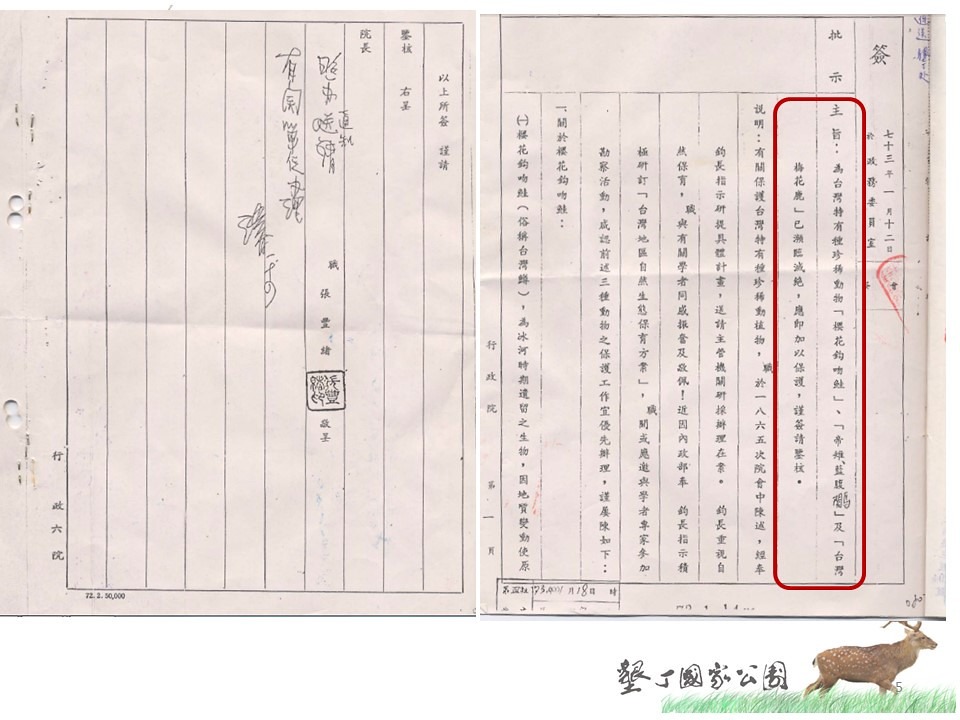 簽
七十三年一月十二日
於政務委員室
批示
主旨：為台灣特有種珍稀動物「櫻花鈎吻鮭」、「帝雉、藍腹鷴」及「台灣
梅花鹿」已瀕臨滅絕，應即加以保護，謹簽請鑒核。
說明：有關保護台灣特有種珍稀動植物，職於一八六五次院會中陳述，經奉
鈞長指示研提具體計畫，送請主管機關研採辦理在案。鈞長重視自
然保育，職與有關學者同感振奮及敬佩！近因內政部奉鈞長指示積
極研訂「台灣地區自然生態保育方案」，職間或應邀與學者專家參加
勘察活動，咸認前述三種動物之保護工作宜優先辦理，謹屢陳如下：
一關於櫻花鈎吻鮭：
㈠櫻花鈎吻鮭（俗稱台灣鱒），為冰河時期遺留之生物，因地質變動使原
行政院
第一頁
73 1月18日 時
以上所簽謹請
鑒核 右呈
院長
職 張豐緒
敬呈
行政六院
72. 2. 50,000
墾丁國家公園
5